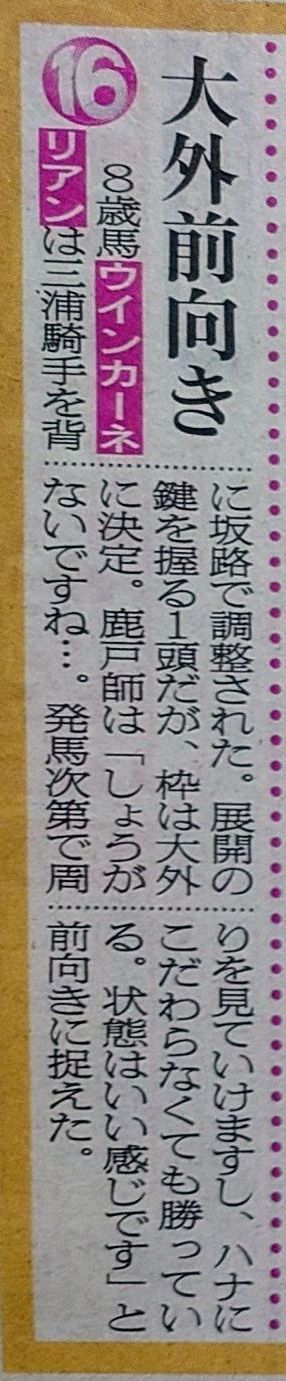 大外前向き
⑯
8歳馬ウインカーネ
リアンは三浦騎手を背
に坂路で調整された。展開の
鍵を握る1頭だが、枠は大外
に決定。鹿戸師は「しょうが
ないですね…。発馬次第で周
りを見ていけますし、ハナに
こだわらなくても勝ってい
る。状態はいい感じです」と
前向きに捉えた。